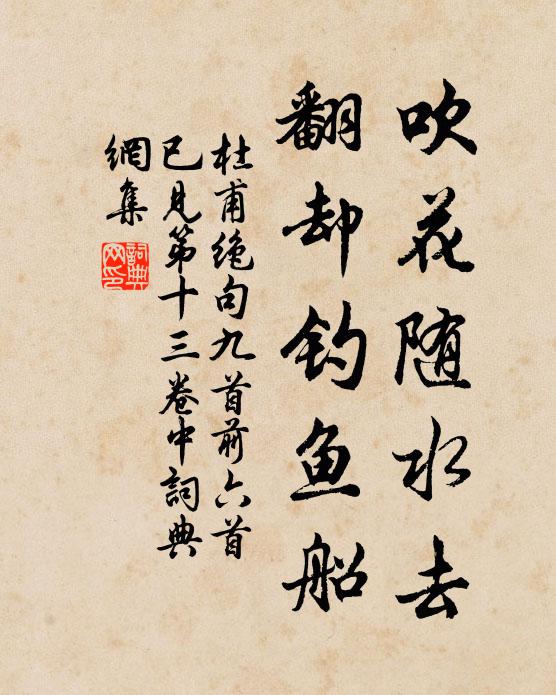 吹花随水去
翻却钓鱼船
杜甫绝句九首前六首
已见第十三卷中詞典
網集
詞典
网印